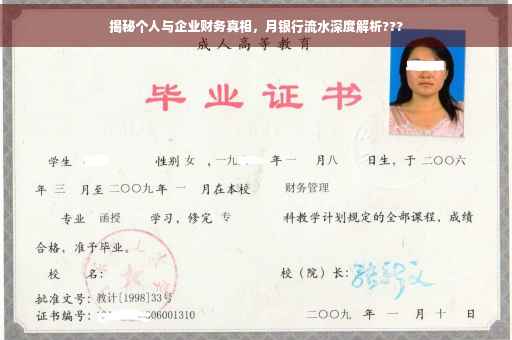 揭秘个人与企业财务真相，月银行流水深度解析???
成人高等教育
毕业证书
学生 性别 女 ，一九 年 一 月 八 日生，于 二〇〇六
年 三 月至 二〇〇九 年 一 月在本校 财务管理
专业 函授 学习，修完 专 科教学计划规定的全部课程，成绩
合格，准予毕业。
校 名： 校（院）长：
批准文号：教计[1998]33号
证书编号： 06001310 二〇〇九 年 一 月 十 日